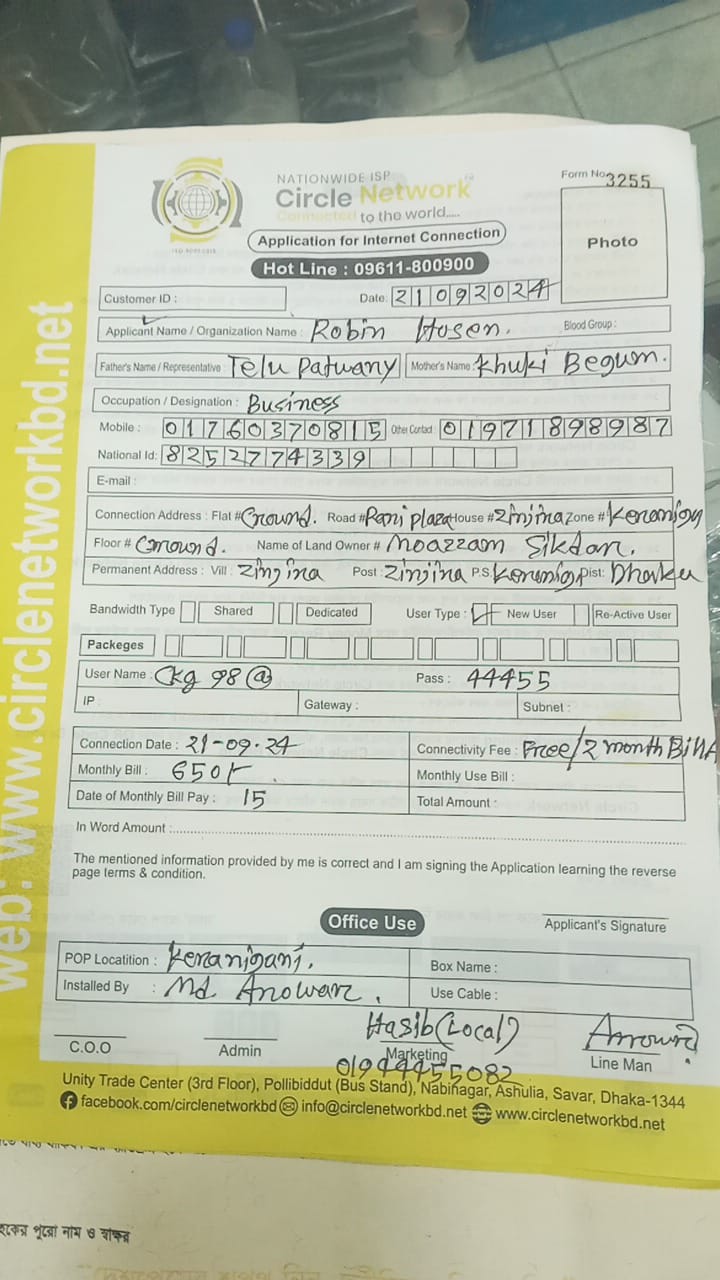 NATIONWIDE ISP
Circle Network
Connected to the world.....
Form No. 3255
Photo
Application for Internet Connection
Hot Line : 09611-800900
Customer ID :
Date: 21092024
Applicant Name / Organization Name : Robin Hosen. Blood Group :
Father's Name / Representative Telu Patwany Mother's Name : Khuki Begum.
Occupation / Designation : Business
Mobile : 01760370815 Other Contact : 01971898987
National Id: 8252774339
E-mail :
Connection Address : Flat # Ground. Road # Rani plaza House # Zinjira Zone #
Floor # Ground. Name of Land Owner # Moazzam Sikdar.
Permanent Address : Vill : Zinjira Post : Zinjira P.S. Dist:
Bandwidth Type Shared Dedicated User Type : New User Re-Active User
Packeges
User Name : Ckg 98@ Pass : 44455
IP : Gateway : Subnet :
Connection Date : 21-09-24 Connectivity Fee : Free/2 month Bill
Monthly Bill : 650/- Monthly Use Bill :
Date of Monthly Bill Pay : 15 Total Amount :
In Word Amount :
The mentioned information provided by me is correct and I am signing the Application learning the reverse
page terms & condition.
Office Use
Applicant's Signature
POP Locatition : Keraniganj. Box Name :
Installed By : Md Anowar. Use Cable :
Hasib (Local)
C.O.O Admin Marketing Line Man
01944455082
Unity Trade Center (3rd Floor), Pollibiddut (Bus Stand), Nabinagar, Ashulia, Savar, Dhaka-1344
facebook.com/circlenetworkbd info@circlenetworkbd.net www.circlenetworkbd.net
web: www.circlenetworkbd.net
পুরো নাম ও স্বাক্ষর